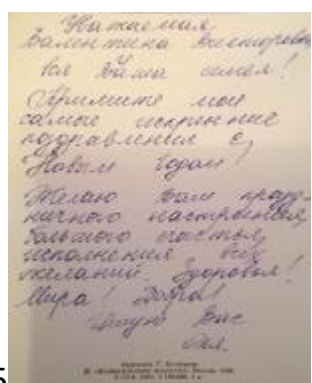 Уважаемая
Валентина Викторовна
вся Ваша семья!
Примите мои
самые искренние
поздравления с
Новым Годом!
Желаю Вам празд-
ничного настроения,
большого счастья,
исполнения всех
желаний. Здоровья!
Мира! Добра!
Целую Вас
Оля.
5